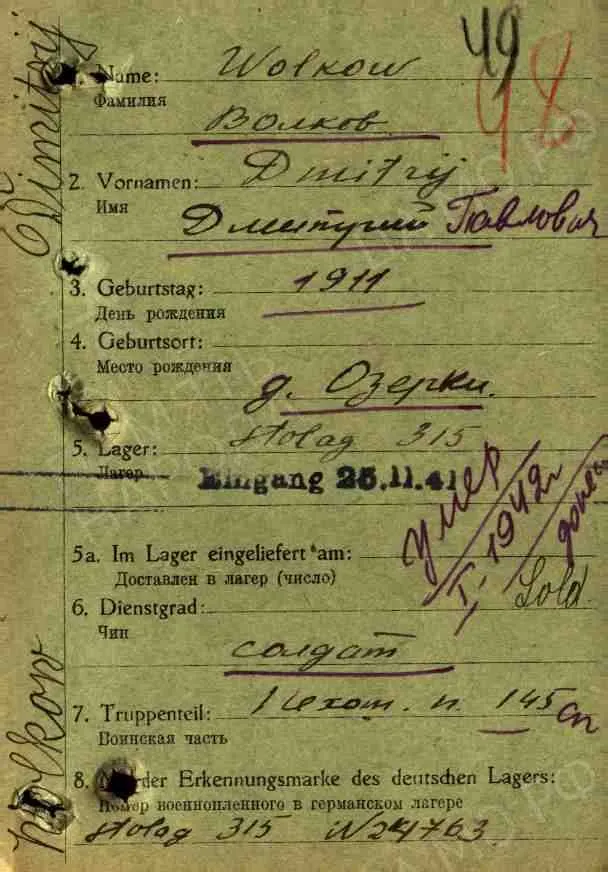 49
48
1. Name: Wolkow
Фамилия
Волков
2. Vornamen: Dmitrij
Имя
Дмитрий Павлович
3. Geburtstag: 1911
День рождения
4. Geburtsort:
Место рождения
д. Озерки.
5. Lager: Stalag 315
Лагер
Eingang 25.11.41
умер
I. 1942г
5a. Im Lager eingeliefert am:
Доставлен в лагер (число)
Sold.
6. Dienstgrad:
Чин
солдат
7. Truppenteil: Пехот. п. 145 сп
Воинская часть
8. Nr. der Erkennungsmarke des deutschen Lagers:
Номер военнопленного в германском лагере
Stalag 315 N24763
Dimitrij
Wolkow